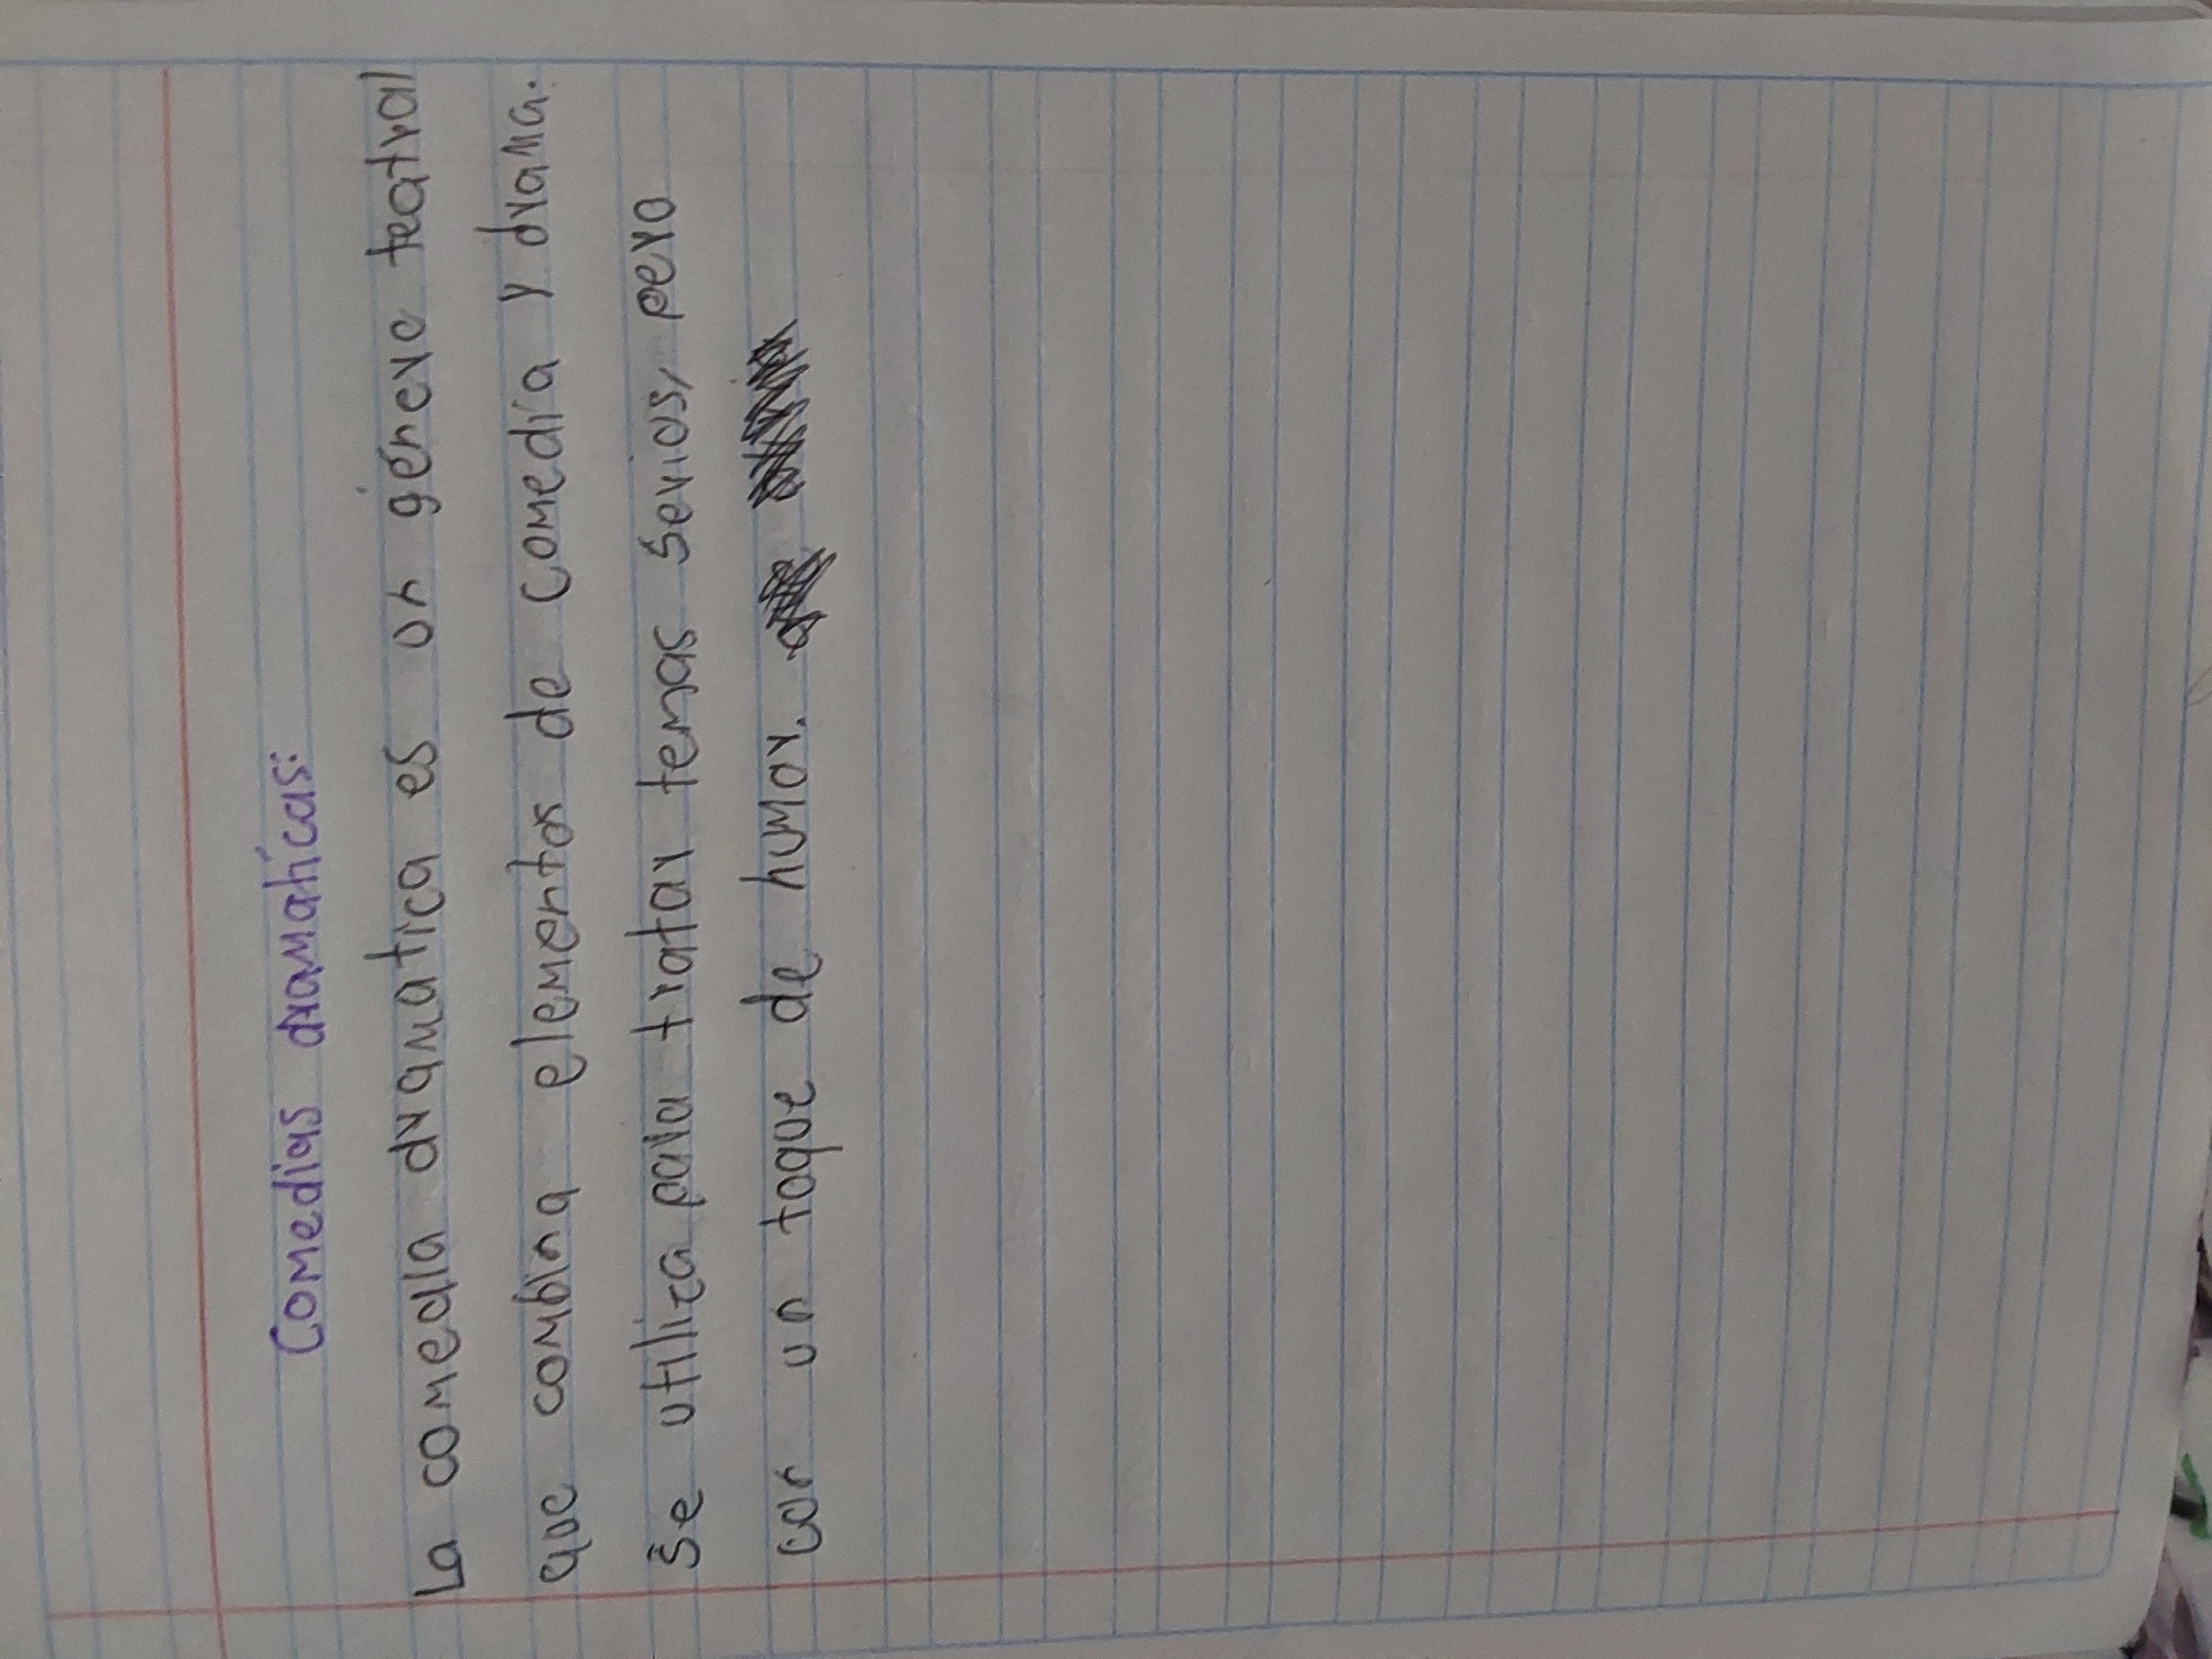 Comedias dramaticas:
La comedia dramatica es un género teatral
que combina elementos de comedia y drama.
Se utiliza para tratar temas serios, pero
con un toque de humor.